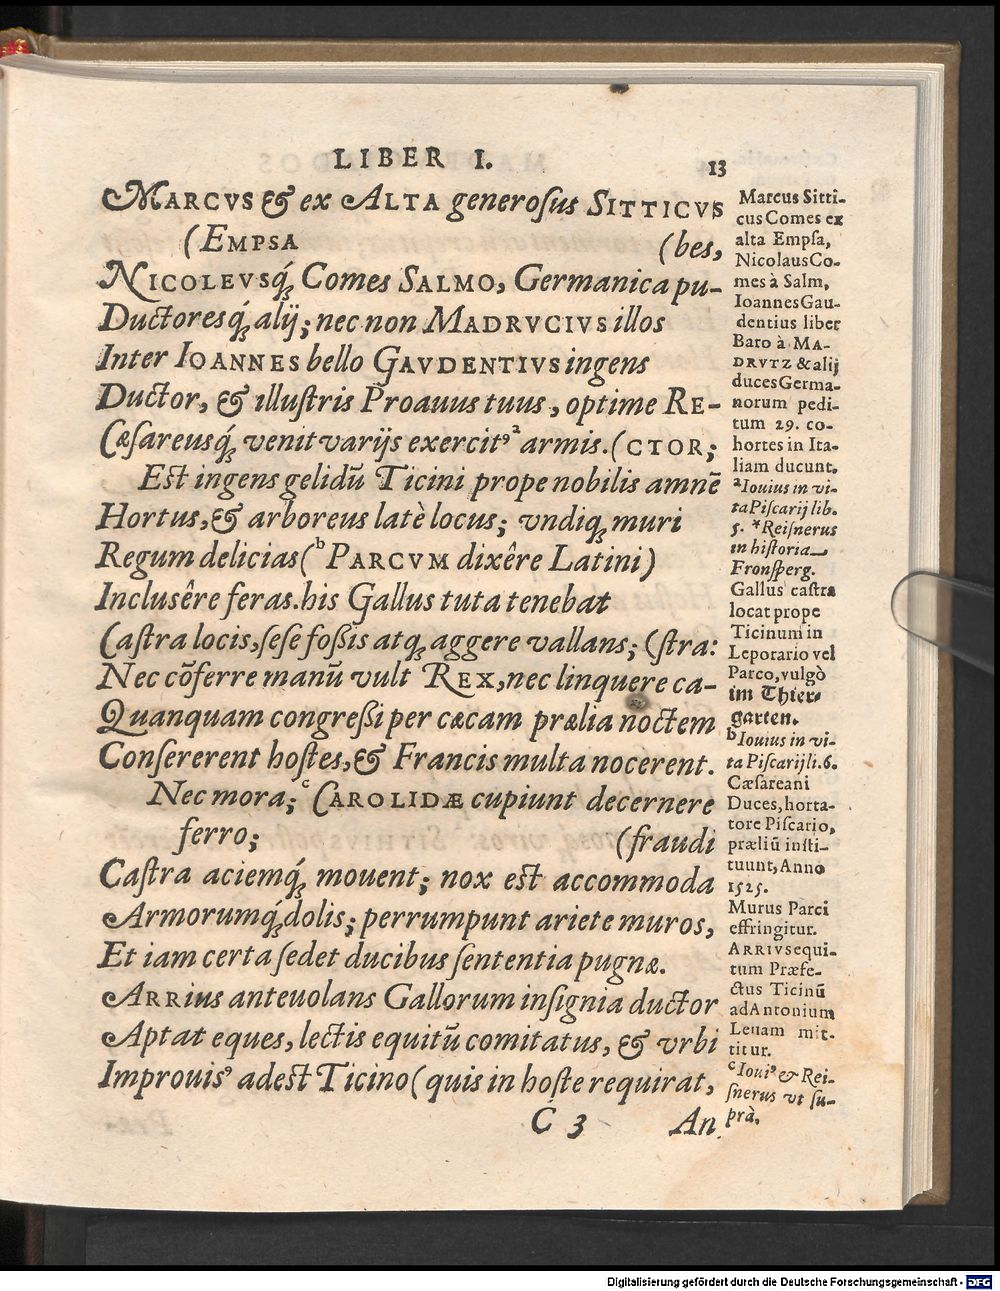 LIBER I.
13
MARCVS & ex ALTA generoſus SITTICVS
(EMPSA (bes,
NICOLEVSq́ꝫ Comes SALMO, Germanica pu-
Ductoresq́ꝫ alij; nec non MADRVCIVS illos
Inter IOANNES bello GAVDENTIVS ingens
Ductor, & illuſtris Proauus tuus, optime RE-
Cæſareusq́ꝫ venit varijs exercitꝰ ᵃ armis. (CTOR;
Eſt ingens gelidū Ticini prope nobilis amnē
Hortus, & arboreus latè locus; vndiqꝫ muri
Regum delicias (ᵇ PARCVM dixêre Latini)
Incluſêre feras. his Gallus tuta tenebat
Caſtra locis, ſeſe foſſis atqꝫ aggere vallans; (ſtra:
Nec cōferre manū vult REX, nec linquere ca-
Quanquam congreſſi per cæcam prælia noctem
Conſererent hoſtes, & Francis multa nocerent.
Nec mora; ᶜ CAROLIDÆ cupiunt decernere
ferro; (fraudi
Caſtra aciemq́ꝫ mouent; nox eſt accommoda
Armorumq́ꝫ dolis; perrumpunt ariete muros,
Et iam certa ſedet ducibus ſententia pugnæ.
ARRius anteuolans Gallorum inſignia ductor
Aptat eques, lectis equitū comitatus, & vrbi
Improuisꝰ adeſt Ticino (quis in hoſte requirat,
C 3
An
Marcus Sitti-
cus Comes ex
alta Empſa,
Nicolaus Co-
mes à Salm,
Ioannes Gau-
dentius liber
Baro à MA-
DRVTZ & alij
duces Germa-
norum pedi-
tum 29. co-
hortes in Ita-
liam ducunt.
ᵃ Iouius in vi-
ta Piſcarij lib.
5. * Reiſnerus
in hiſtoria
Fronſperg.
Gallus caſtra
locat prope
Ticinum in
Leporario vel
Parco, vulgò
im Thier-
garten.
ᵇ Iouius in vi-
ta Piſcarij li. 6.
Cæſareani
Duces, horta-
tore Piſcario,
præliū inſti-
tuunt, Anno
1525.
Murus Parci
effringitur.
ARRIVS equi-
tum Præfe-
ctus Ticinū
ad Antonium
Leuam mit-
titur.
ᶜ Iouiꝰ & Rei-
ſnerus vt ſu-
prà.
Digitalisierung gefördert durch die Deutsche Forschungsgemeinschaft - DFG